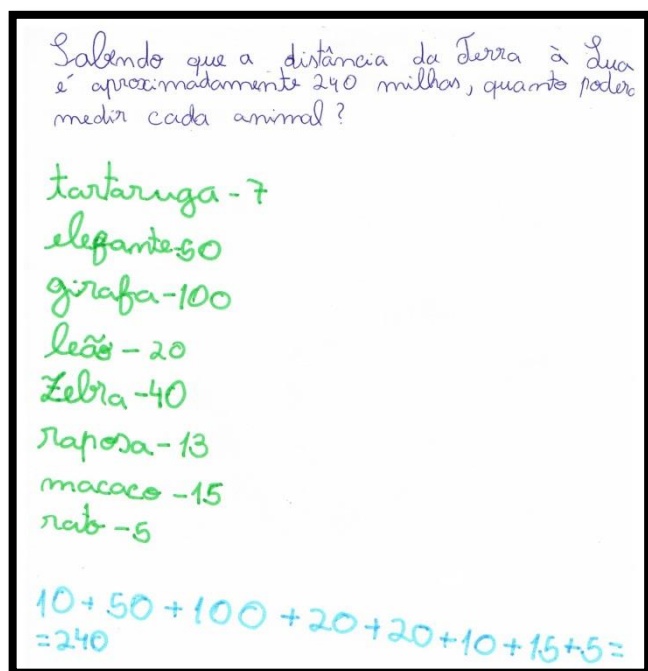 Sabendo que a distância da Terra à Lua
é aproximadamente 240 milhas, quanto poderá
medir cada animal?
tartaruga - 7
elefante-50
girafa-100
leão - 20
Zebra -40
raposa - 13
macaco -15
rato -5
10+50+100+20+20+10+15+5=
=240